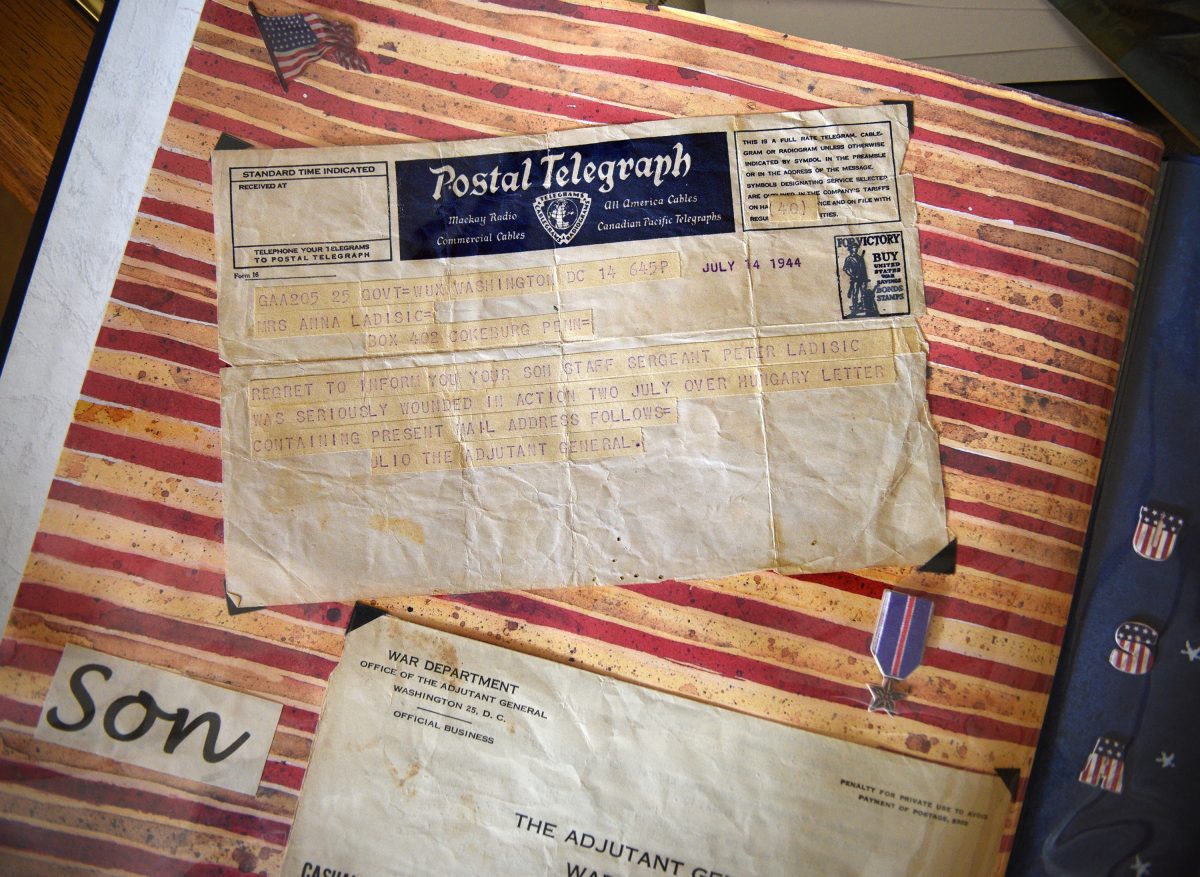 STANDARD TIME INDICATED
RECEIVED AT
TELEPHONE YOUR TELEGRAMS
TO POSTAL TELEGRAPH
Form 16
Postal Telegraph
Mackay Radio
Commercial Cables
TELEGRAMS
All America Cables
Canadian Pacific Telegraphs
THIS IS A FULL RATE TELEGRAM, CABLE-
GRAM OR RADIOGRAM UNLESS OTHERWISE
INDICATED BY SYMBOL IN THE PREAMBLE
OR IN THE ADDRESS OF THE MESSAGE.
SYMBOLS DESIGNATING SERVICE SELECTED
ARE IN THE COMPANY'S TARIFFS
ON AND ON FILE WITH
(40)
FOR VICTORY
BUY
UNITED
STATES
WAR
SAVINGS
BONDS
STAMPS
GAA205 25 GOVT=WUX WASHINGTON DC 14 645P
JULY 14 1944
MRS ANNA LADISIC=
BOX 402 COKEBURG PENN=
REGRET TO INFORM YOU YOUR SON STAFF SERGEANT PETER LADISIC
WAS SERIOUSLY WOUNDED IN ACTION TWO JULY OVER HUNGARY LETTER
CONTAINING PRESENT MAIL ADDRESS FOLLOWS=
ULIO THE ADJUTANT GENERAL.
Son
WAR DEPARTMENT
OFFICE OF THE ADJUTANT GENERAL
WASHINGTON 25, D. C.
OFFICIAL BUSINESS
PENALTY FOR PRIVATE USE TO AVOID
PAYMENT OF POSTAGE, $300
THE ADJUTANT GE
WA
CASUA
U
S
A